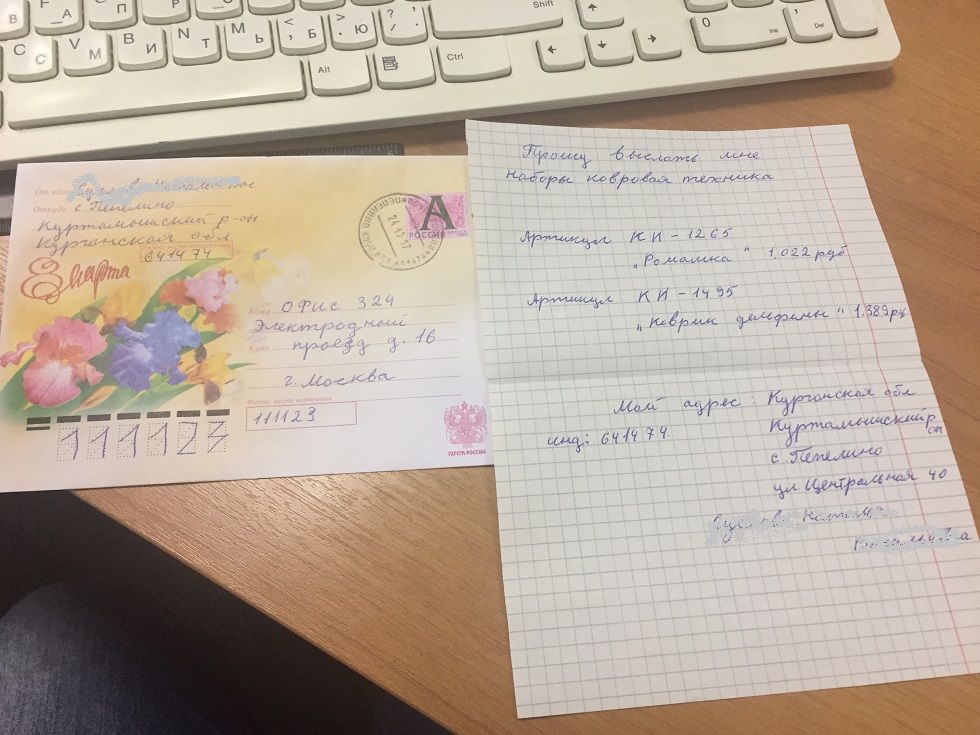 От кого
Откуда с. Пепелино
Куртамышский р-он
Курганская обл
641474
8 Марта
А
РОССИЯ
24 10 17
Кому ОФИС 324
Электродный
Куда проезд д. 16
г. Москва
Индекс места назначения
111123
111123
ПОЧТА РОССИИ
Прошу выслать мне
наборы ковровая техника
Артикул КИ-1265
„Ромашка" 1.022 руб
Артикул КИ-1495
„Коврик дельфины" 1.389 ру
Мой адрес: Курганская обл
инд: 641474. Куртамышский р
он
с. Пепелино
ул Центральная 40
Shift
Alt
Ctrl
0
Ins
Del